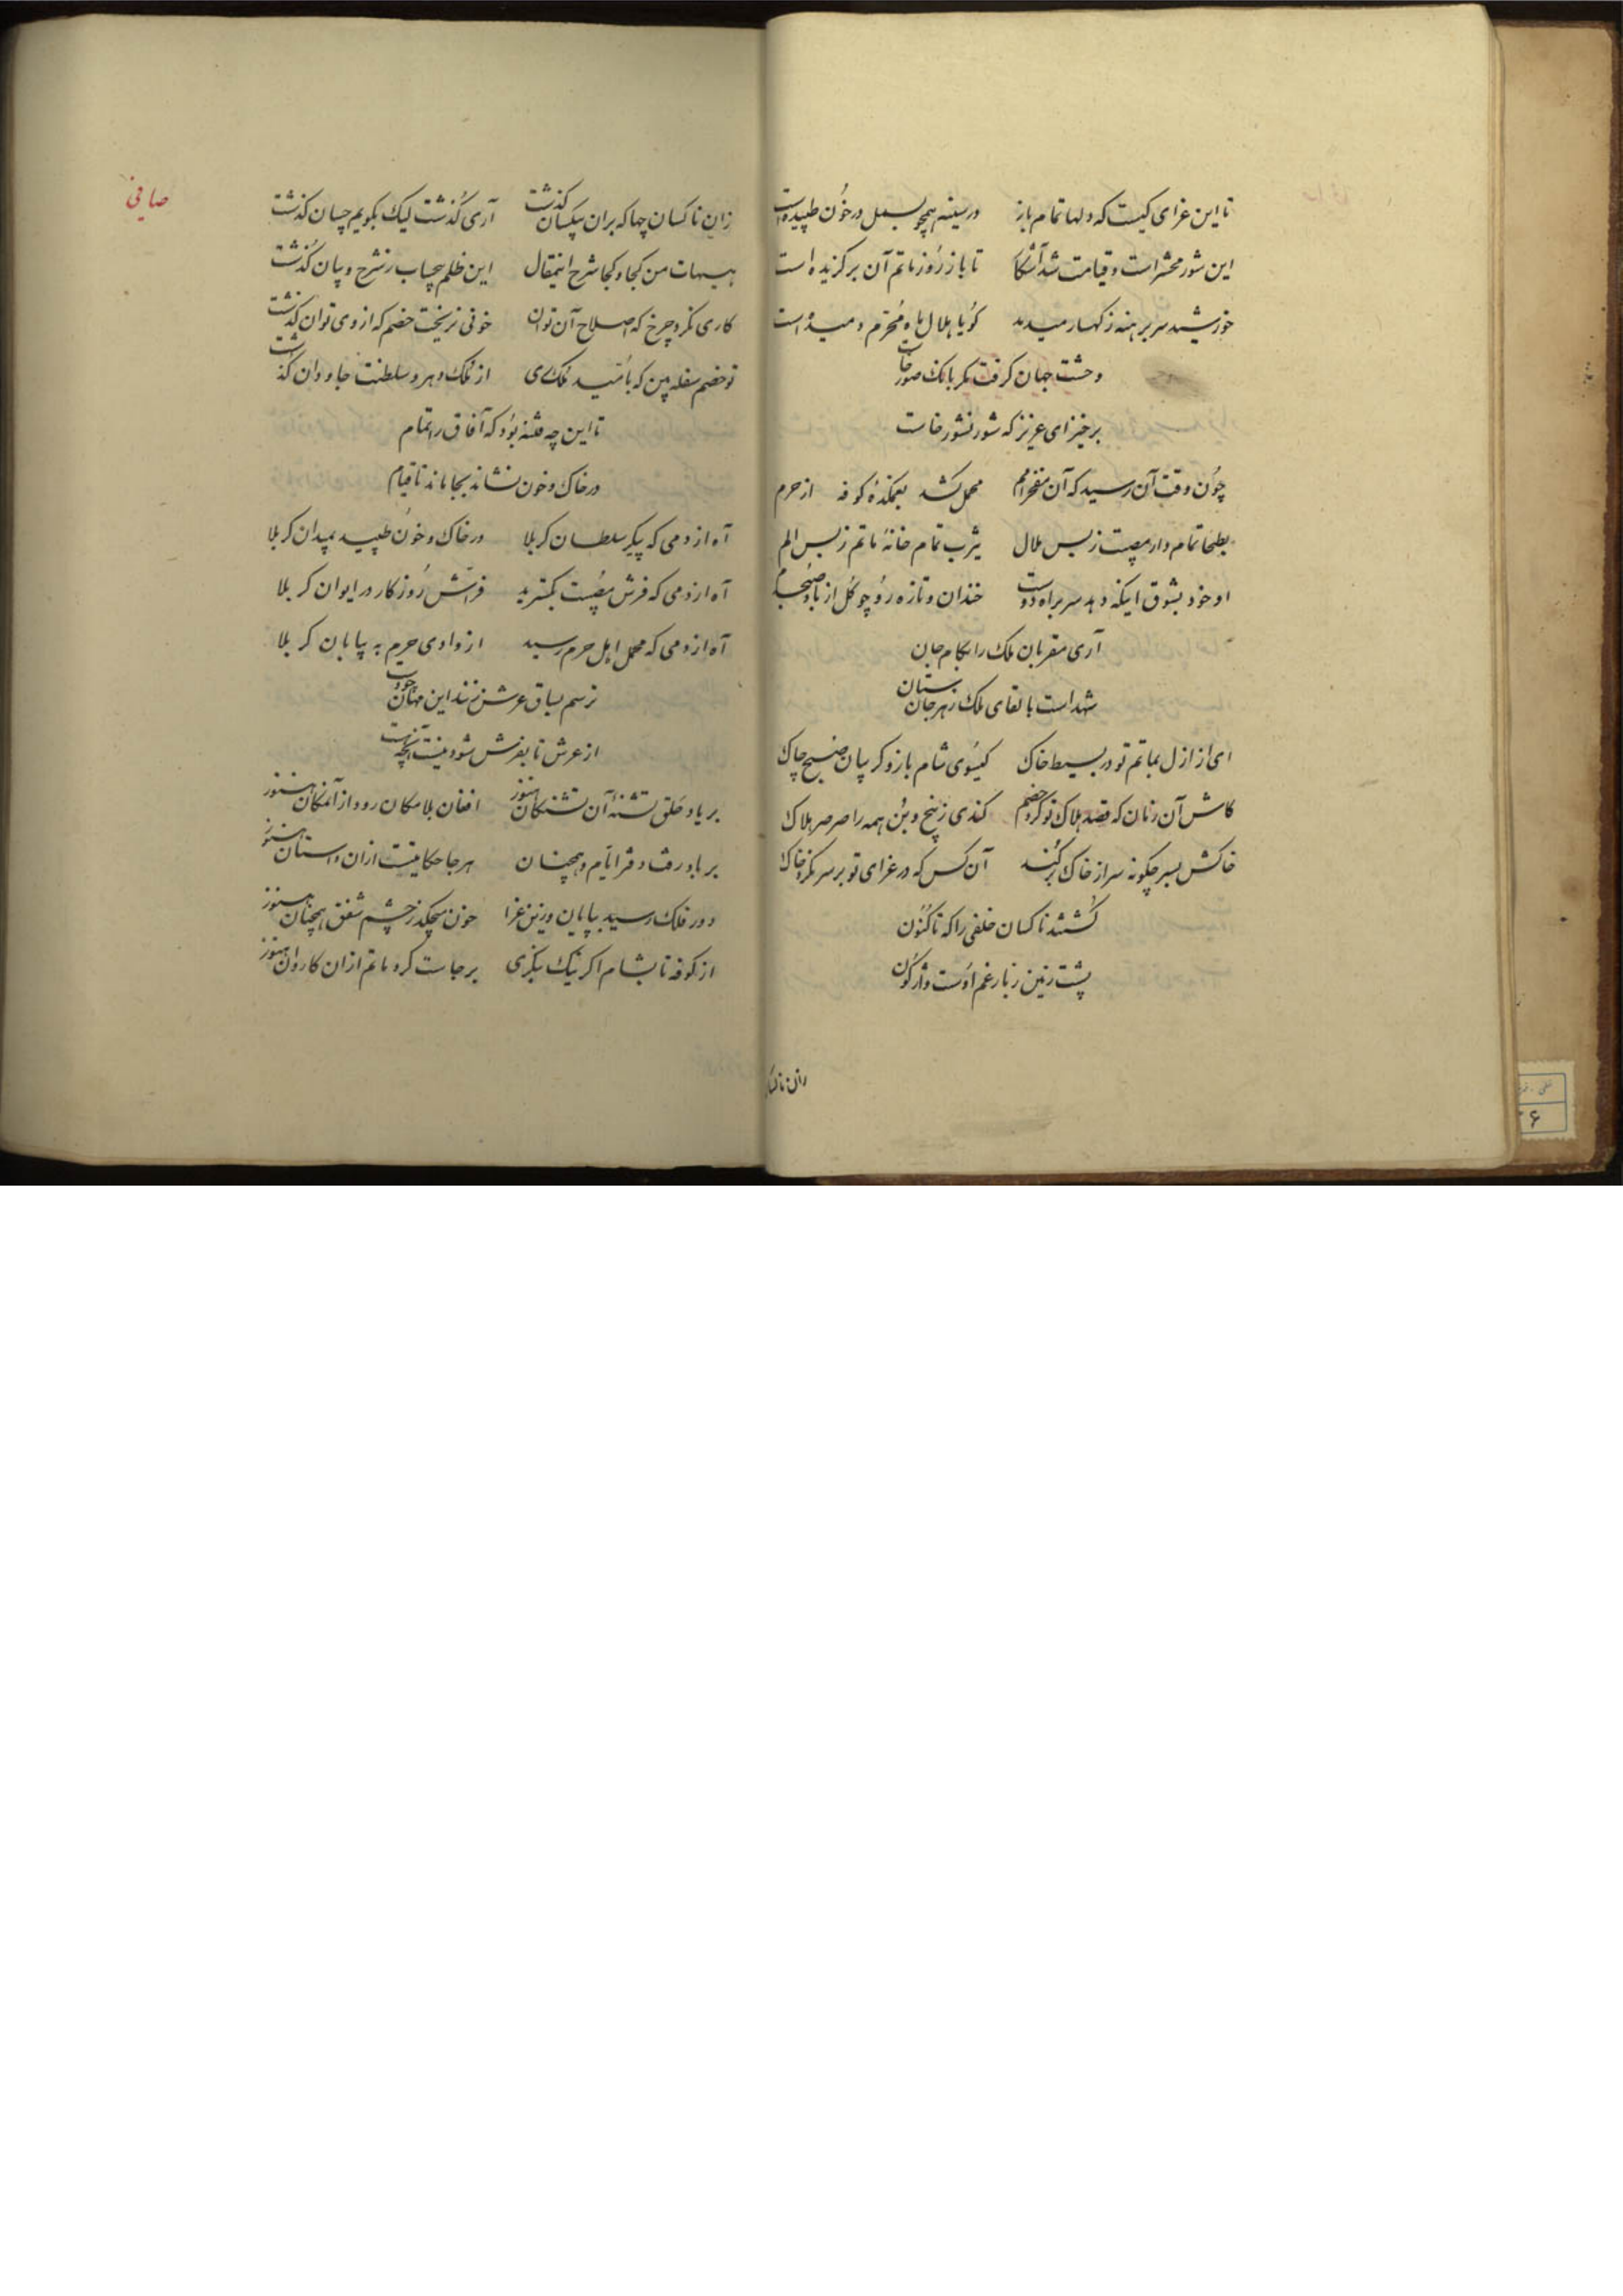 تا این عزای کیست که دلها تمام باز در سینه همچو بسمل در خون طپیده است
این شور محشر است و قیامت شد آشکا تا باز روز ماتم آن برگزیده است
خورشید سر برهنه ز کهسار میدمد گویا هلال ماه محرم دمیده است
وحشت جهان گرفت مگر بانک صور خاست
برخیز ای عزیز که شور نشور خاست
چون وقت آن رسید که آن مفخر امم محمل کشد بغمکدهٔ کوفه از حرم
بطحا تمام دار مصیبت ز بس ملال یثرب تمام خانهٔ ماتم ز بس الم
او خود بشوق اینکه دهد سر براه دوست خندان و تازه رو چو گل از باد صبحدم
آری مقربان ملک را بکام جان
شهد است با لقای ملک زهر جان ستان
ای از ازل بماتم تو در بسیط خاک گیسوی شام باز و گریبان صبح چاک
کاش آن زمان که قصد هلاک تو کرد خصم کندی ز بیخ و بن همه را صرصر هلاک
خاکش بسر چگونه سر از خاک بر کند آن کس که در عزای تو بر سر نکرد خاک
کشتند ناکسان خلفی را که تا کنون
پشت زمین ز بار غم اوست واژگون
زان ناکسان
صافی
زان ناکسان چها که بران بیکسان گذشت آری گذشت لیک بگویم چسان گذشت
هیهات من کجا و کجا شرح اینمقال این ظلم بیحساب ز شرح و بیان گذشت
کاری نکرد چرخ که اصلاح آن توان خونی نریخت خصم که از وی توان گذشت
تو خصم سفله بین که بامید ملک ری از ملک دهر و سلطنت جاودان گذشت
تا این چه فتنه بود که آفاق را تمام
در خاک و خون نشاند بجا ماند تا قیام
آه از دمی که پیکر سلطان کربلا در خاک و خون طپید بمیدان کربلا
آه از دمی که فرش مصیبت بگسترید فراش روزگار در ایوان کربلا
آه از دمی که محمل اهل حرم رسید از وادی حریم به پایان کربلا
ترسم بساق عرش زنند این
از عرش تا بفرش شود نیست آنچه هست
بر یاد حلق تشنهٔ آن تشنگان هنوز افغان بلامکان رود از آنمکان هنوز
بر باد رفت دفتر ایام و همچنان هر جا حکایتیست ازان داستان هنوز
دور فلک رسید بپایان و زین عزا خون میچکد ز چشم شفق همچنان هنوز
از کوفه تا بشام اگر نیک بنگری برجاست گرد ماتم ازان کاروان هنوز